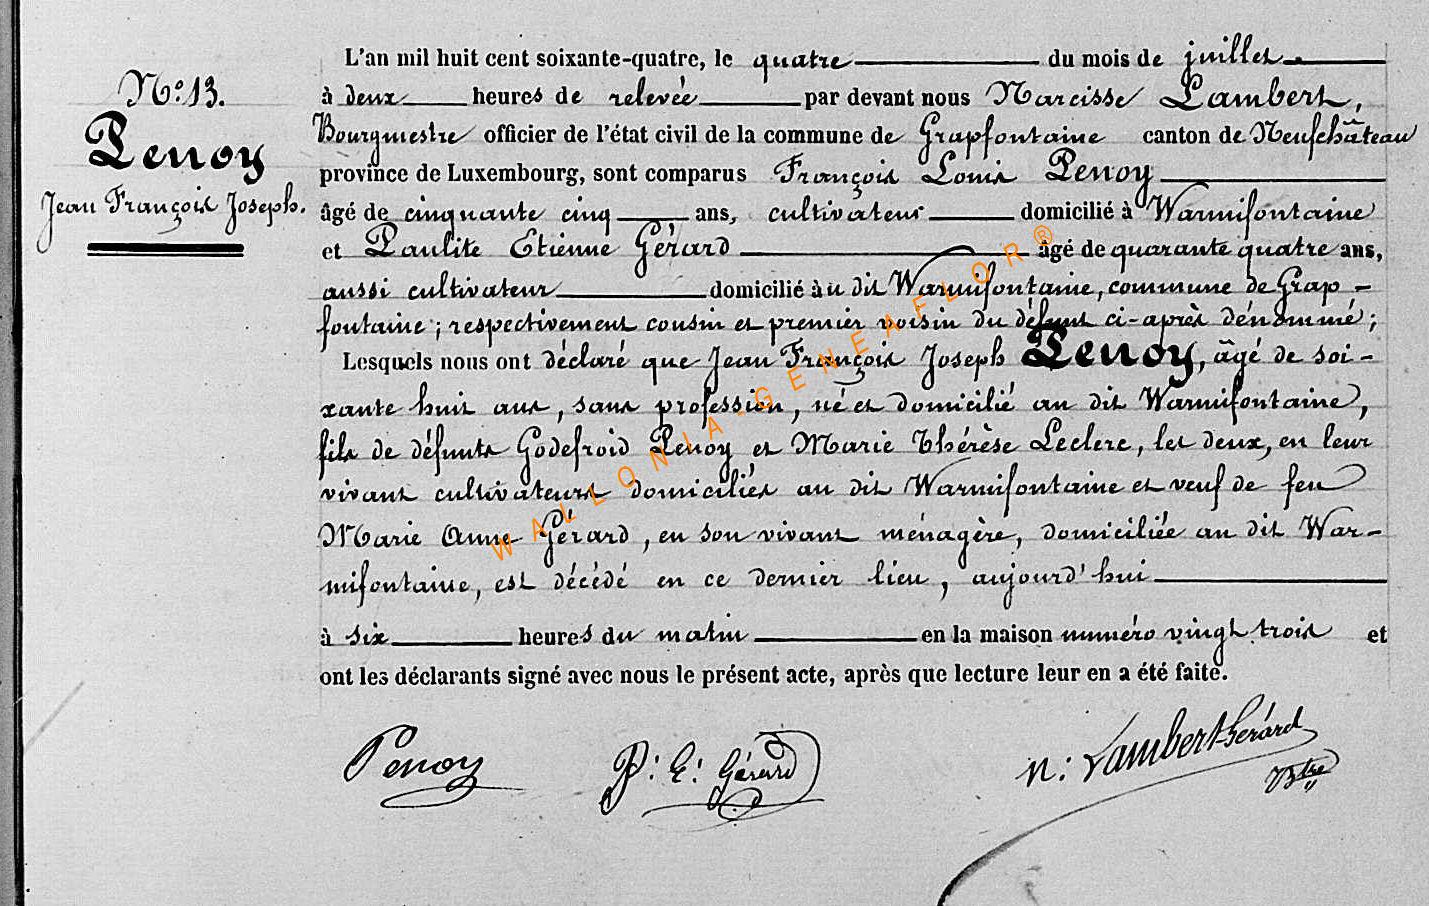 N° 13.
Penoy
Jean François Joseph.
L'an mil huit cent soixante-quatre, le quatre du mois de juillet
à deux heures de relevée par devant nous Narcisse Lambert,
Bourgmestre officier de l'état civil de la commune de Grapfontaine canton de Neufchâteau
province de Luxembourg, sont comparus François Louis Penoy
âgé de cinquante cinq ans, cultivateur domicilié à Warmifontaine
et Paulite Etienne Gérard âgé de quarante quatre ans,
aussi cultivateur domicilié au dit Warmifontaine, commune de Grap-
fontaine ; respectivement cousin et premier voisin du défunt ci-après dénommé ;
Lesquels nous ont déclaré que Jean François Joseph Penoy, âgé de soi-
xante huit ans, sans profession, né et domicilié au dit Warmifontaine,
fils de défunts Godefroid Penoy et Marie Thérèse Leclerc, les deux, en leur
vivant cultivateurs domiciliés au dit Warmifontaine et veuf de feu
Marie Anne Gérard, en son vivant ménagère, domiciliée au dit War-
mifontaine, est décédé en ce dernier lieu, aujourd'hui
à six heures du matin en la maison numéro vingt trois et
ont les déclarants signé avec nous le présent acte, après que lecture leur en a été faite.
Penoy P: E: Gérard N: Lambert-Gérard
Btre
WALLONIA-GENEAFLOR®